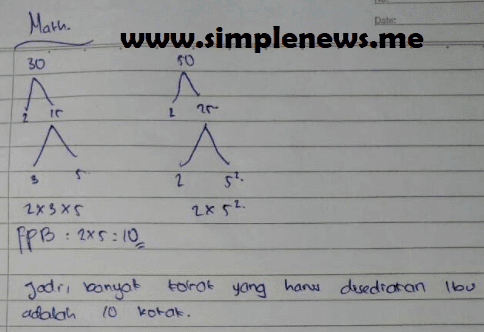 Math.
Date:
www.simplenews.me
30 50
2 15 2 25
3 5 2 5².
2x3x5 2 x 5².
FPB : 2x5 : 10
Jadi, banyak kotak yang harus disediakan Ibu
adalah 10 kotak.